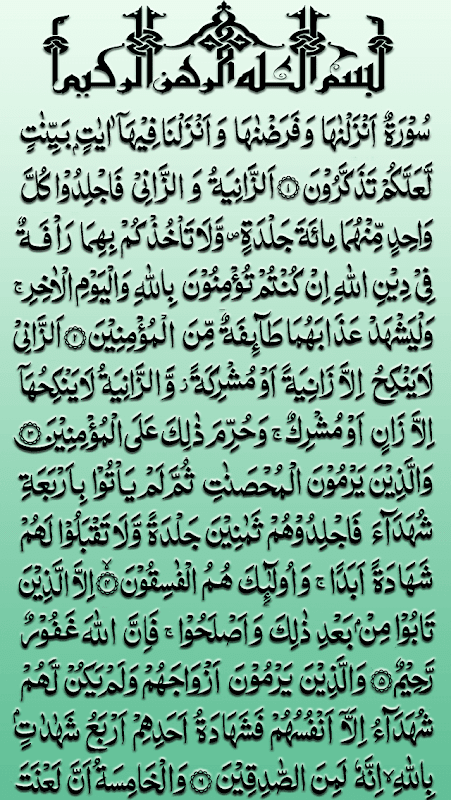 بسم الله الرحمن الرحيم
سُوْرَةٌ اَنْزَلْنٰهَا وَفَرَضْنٰهَا وَاَنْزَلْنَا فِيْهَآ اٰيٰتٍۭ بَيِّنٰتٍ
لَّعَلَّكُمْ تَذَكَّرُوْنَ ﴿۱﴾ اَلزَّانِيَةُ وَالزَّانِيْ فَاجْلِدُوْا كُلَّ
وَاحِدٍ مِّنْهُمَا مِائَةَ جَلْدَةٍ ۖ وَّلَا تَاْخُذْكُمْ بِهِمَا رَاْفَةٌ
فِيْ دِيْنِ اللهِ اِنْ كُنْتُمْ تُؤْمِنُوْنَ بِاللهِ وَالْيَوْمِ الْاٰخِرِ ۚ
وَلْيَشْهَدْ عَذَابَهُمَا طَآئِفَةٌ مِّنَ الْمُؤْمِنِيْنَ ﴿۲﴾ اَلزَّانِيْ
لَا يَنْكِحُ اِلَّا زَانِيَةً اَوْ مُشْرِكَةً ۡ وَّالزَّانِيَةُ لَا يَنْكِحُهَآ
اِلَّا زَانٍ اَوْ مُشْرِكٌ ۚ وَحُرِّمَ ذٰلِكَ عَلَى الْمُؤْمِنِيْنَ ﴿۳﴾
وَالَّذِيْنَ يَرْمُوْنَ الْمُحْصَنٰتِ ثُمَّ لَمْ يَاْتُوْا بِاَرْبَعَةِ
شُهَدَآءَ فَاجْلِدُوْهُمْ ثَمٰنِيْنَ جَلْدَةً وَّلَا تَقْبَلُوْا لَهُمْ
شَهَادَةً اَبَدًا ۚ وَاُولٰٓئِكَ هُمُ الْفٰسِقُوْنَ ﴿۴﴾ اِلَّا الَّذِيْنَ
تَابُوْا مِنْۢ بَعْدِ ذٰلِكَ وَاَصْلَحُوْا ۚ فَاِنَّ اللهَ غَفُوْرٌ
رَّحِيْمٌ ﴿۵﴾ وَالَّذِيْنَ يَرْمُوْنَ اَزْوَاجَهُمْ وَلَمْ يَكُنْ لَّهُمْ
شُهَدَآءُ اِلَّآ اَنْفُسُهُمْ فَشَهَادَةُ اَحَدِهِمْ اَرْبَعُ شَهٰدٰتٍۭ
بِاللهِ ۙ اِنَّهٗ لَمِنَ الصّٰدِقِيْنَ ﴿۶﴾ وَالْخَامِسَةُ اَنَّ لَعْنَتَ